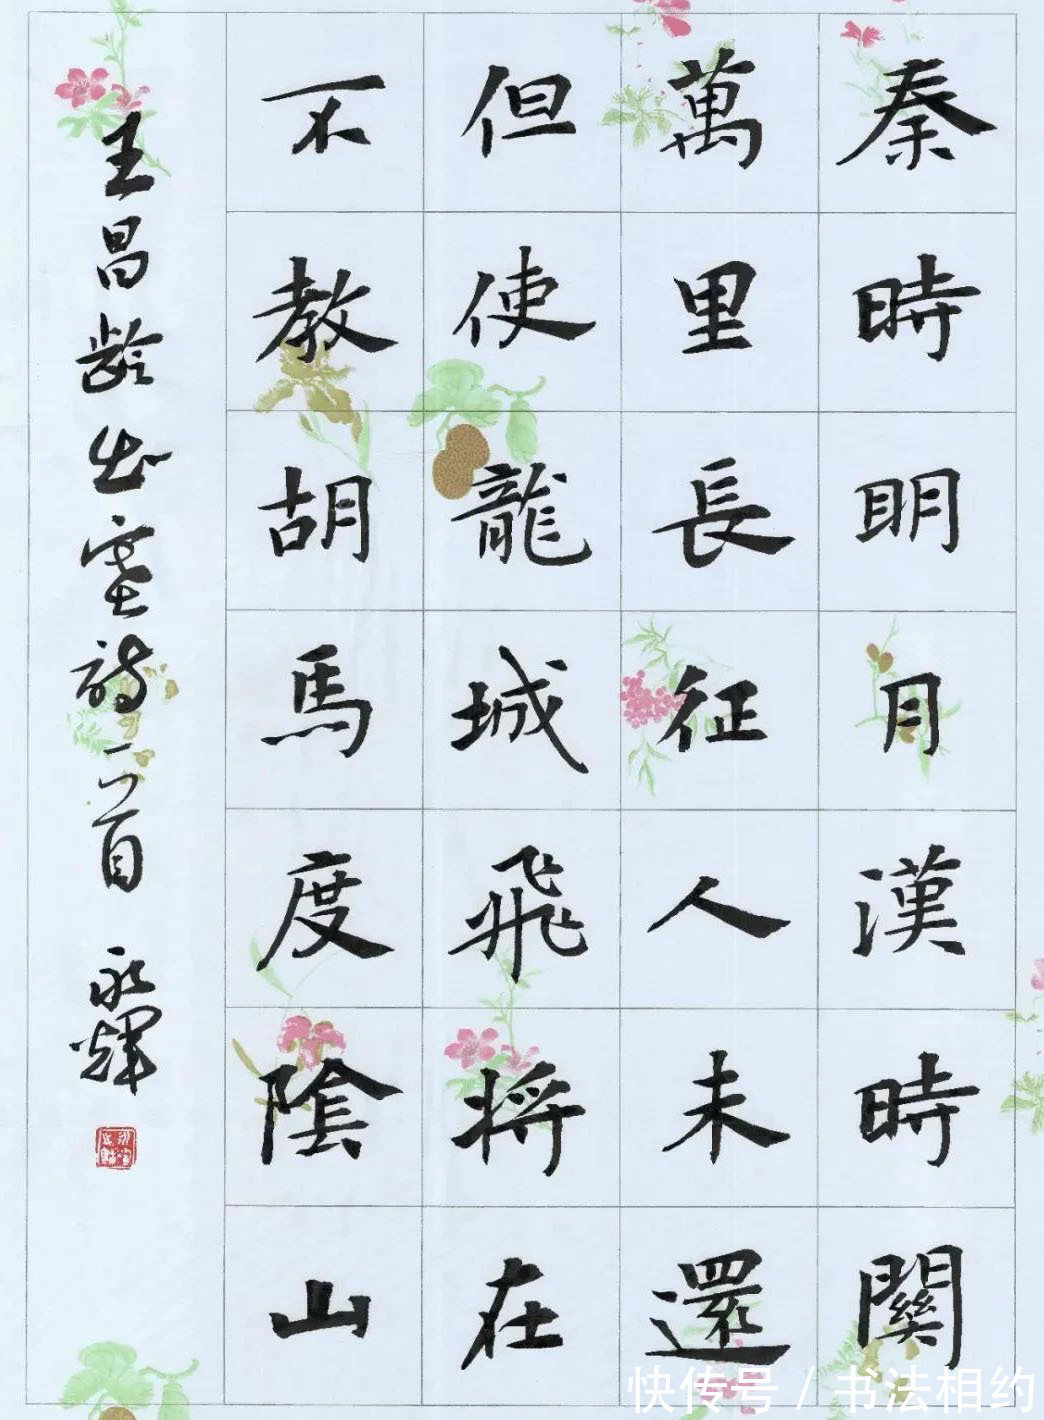 秦時明月漢時關
萬里長征人未還
但使龍城飛將在
不教胡馬度陰山
王昌齡出塞詩一首 永輝
快传号 / 书法相约